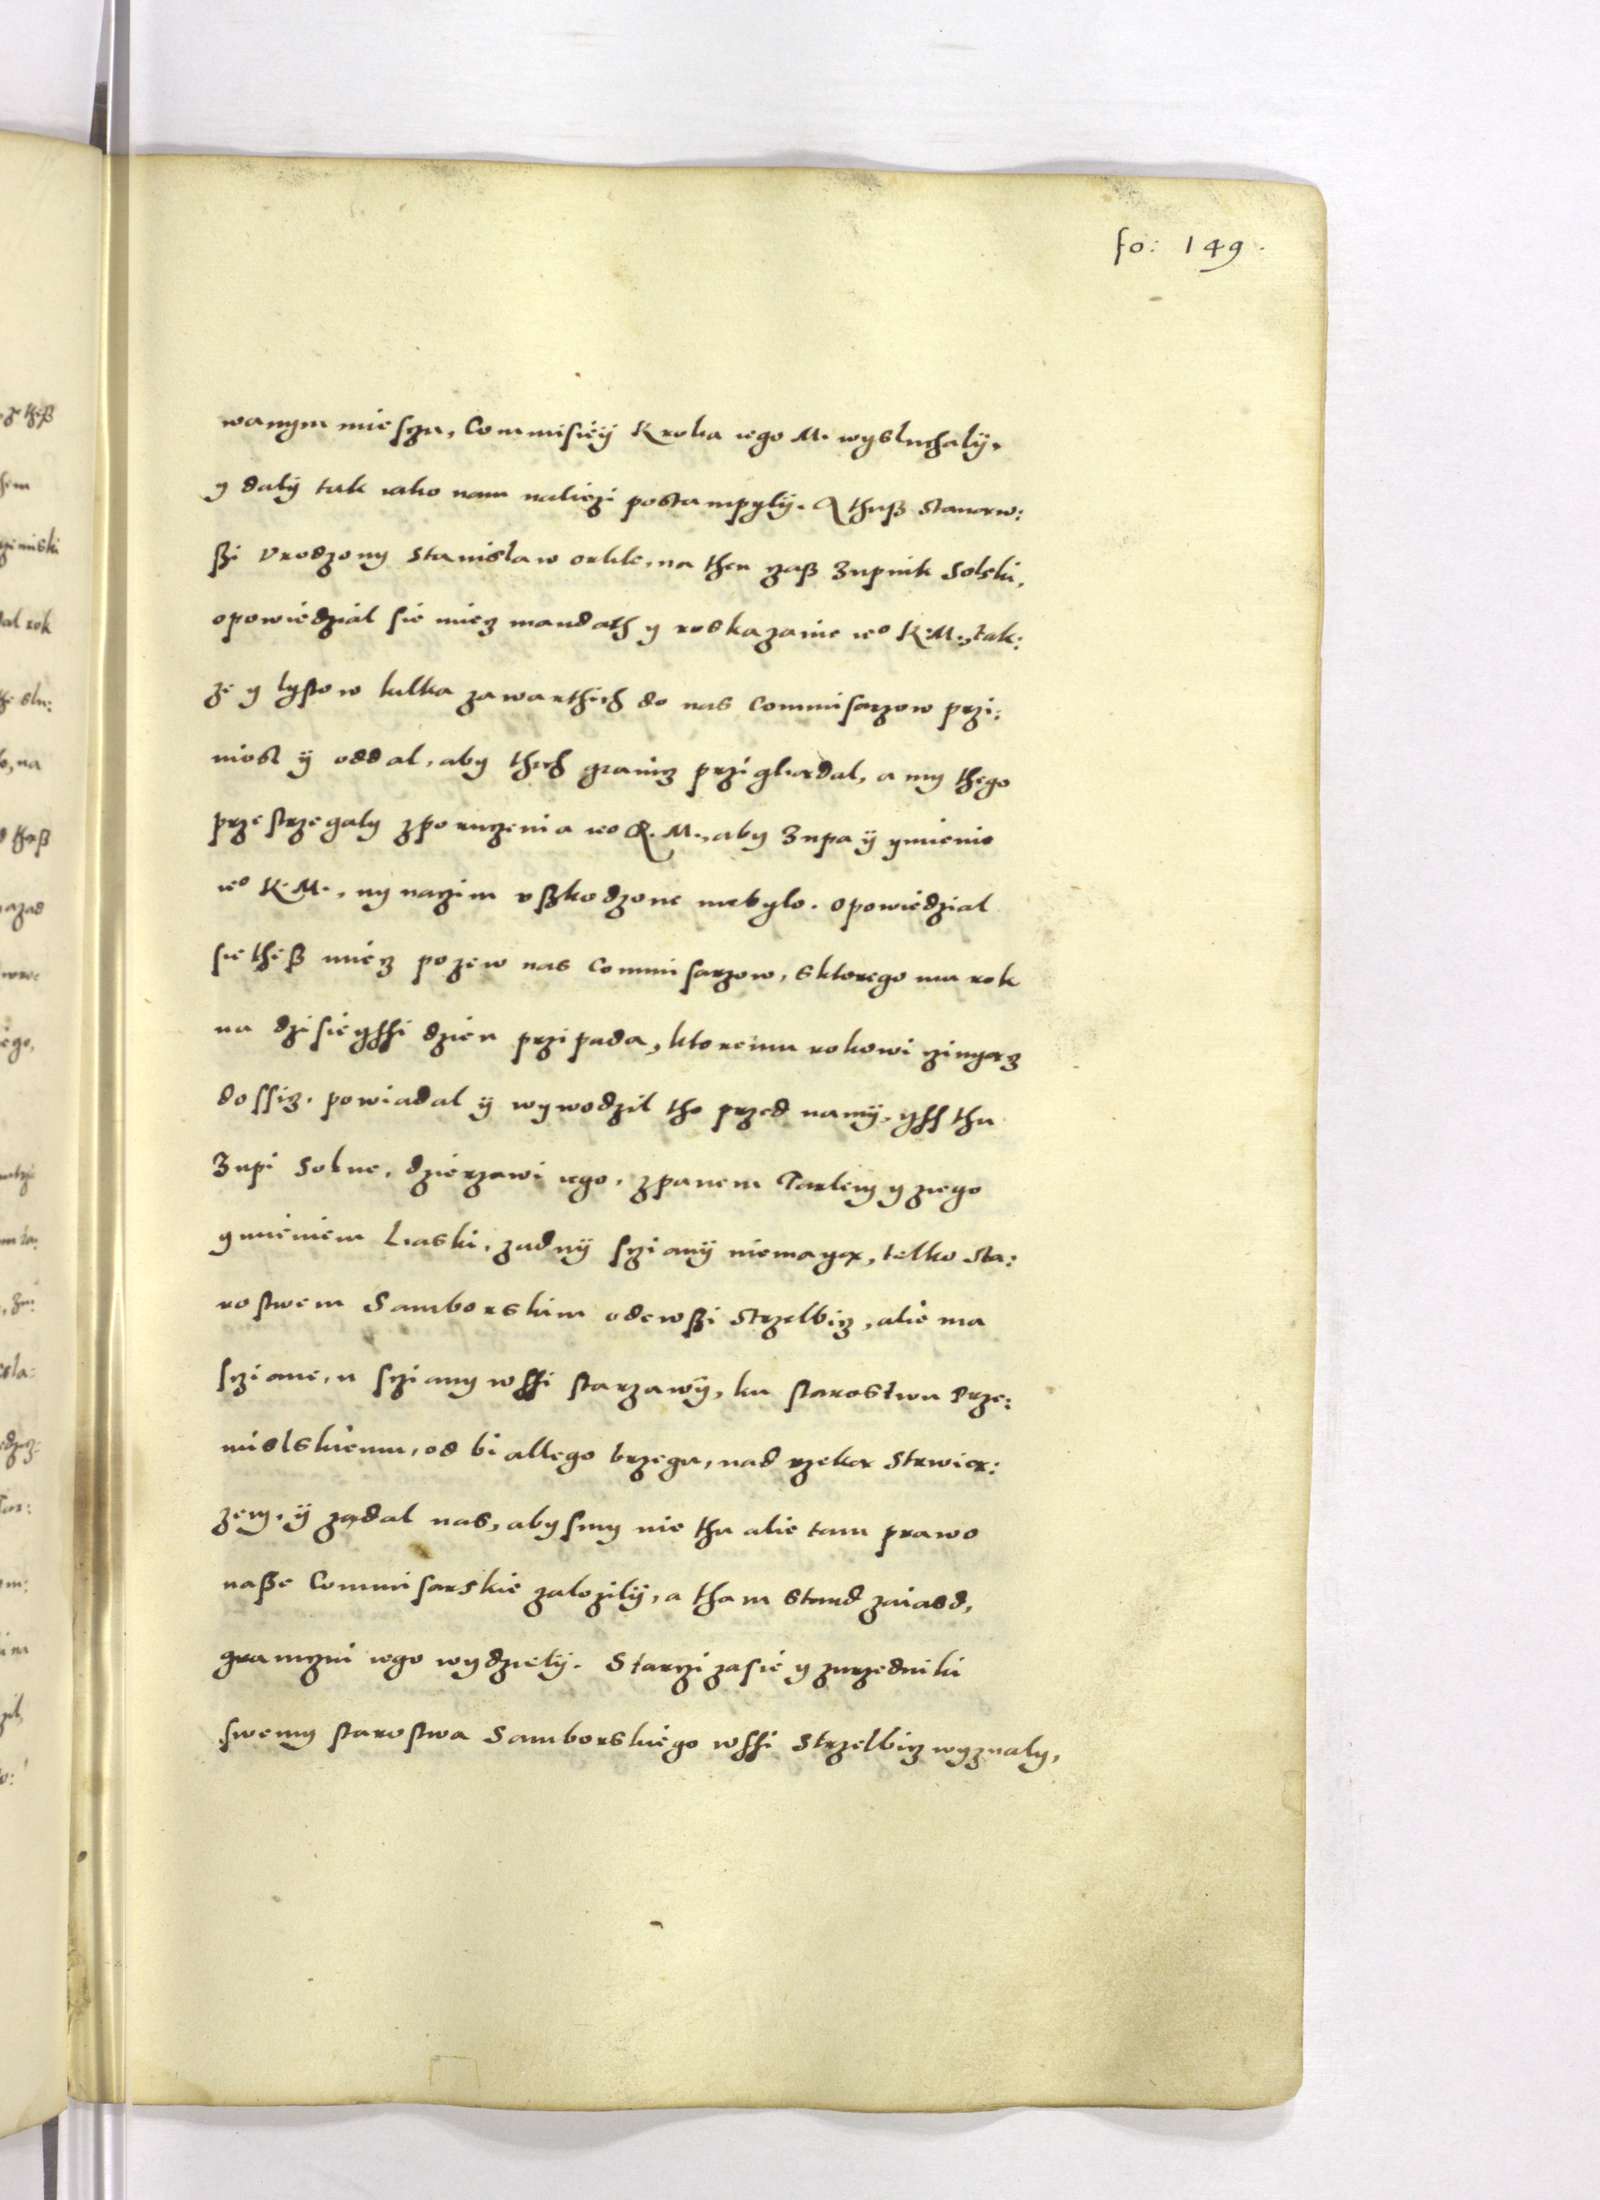 fo: 149.
wanym miesczu, Commisiéÿ Krolia iego M. wysluchalÿ,
y dalÿ tak iako nam naliezi postampylÿ. A thuß stanaw:
ßi Vrodzony Stanislaw orlik, na then czaß Zupnik Solski,
opowiedzial sie miecz mandath y roskazanie ieº K. M., tak:
ze y lystow kilka zawarthich do nas Commisarzow przi:
niosl ÿ oddal, aby thich granicz prziglądal, a my thego
przestrzegaly zporuczenia ieo K. M., aby Zupa ÿ ymienie
ieº K. M., ny naczim vßkodzone niebylo. opowiedzial
sie theß miecz pozew nas Commisarzow, sktorego ma rok
na dzisieyssi dzien przipada, ktoremu rokowi czinyącz
dossicz, powiadal ÿ wywodzil tho przed namÿ, yss thu
Zupi Solne, dzierzawi iego, zpanem Tarlem y ziego
ymieniem Liaski, zadnÿ scianÿ niemayą, telko Sta:
rostwem Samborskim odewßi Strzelbicz, alie ma
scziane, u scziany wssi starzawÿ, ku starostwu Prze:
mislskiemu, od biallego brzegu, nad rzeką Strwiąż:
zem, ÿ ządal nas, abysmy nie thu alie tam prawo
naße Commisarskie zalozilÿ, a tham stand zaiasd,
graniczni iego wydzielÿ. Starzi zasie y zurzedniki
swemy starostwa Samborskiego wssi Strzelbicz wyznaly,